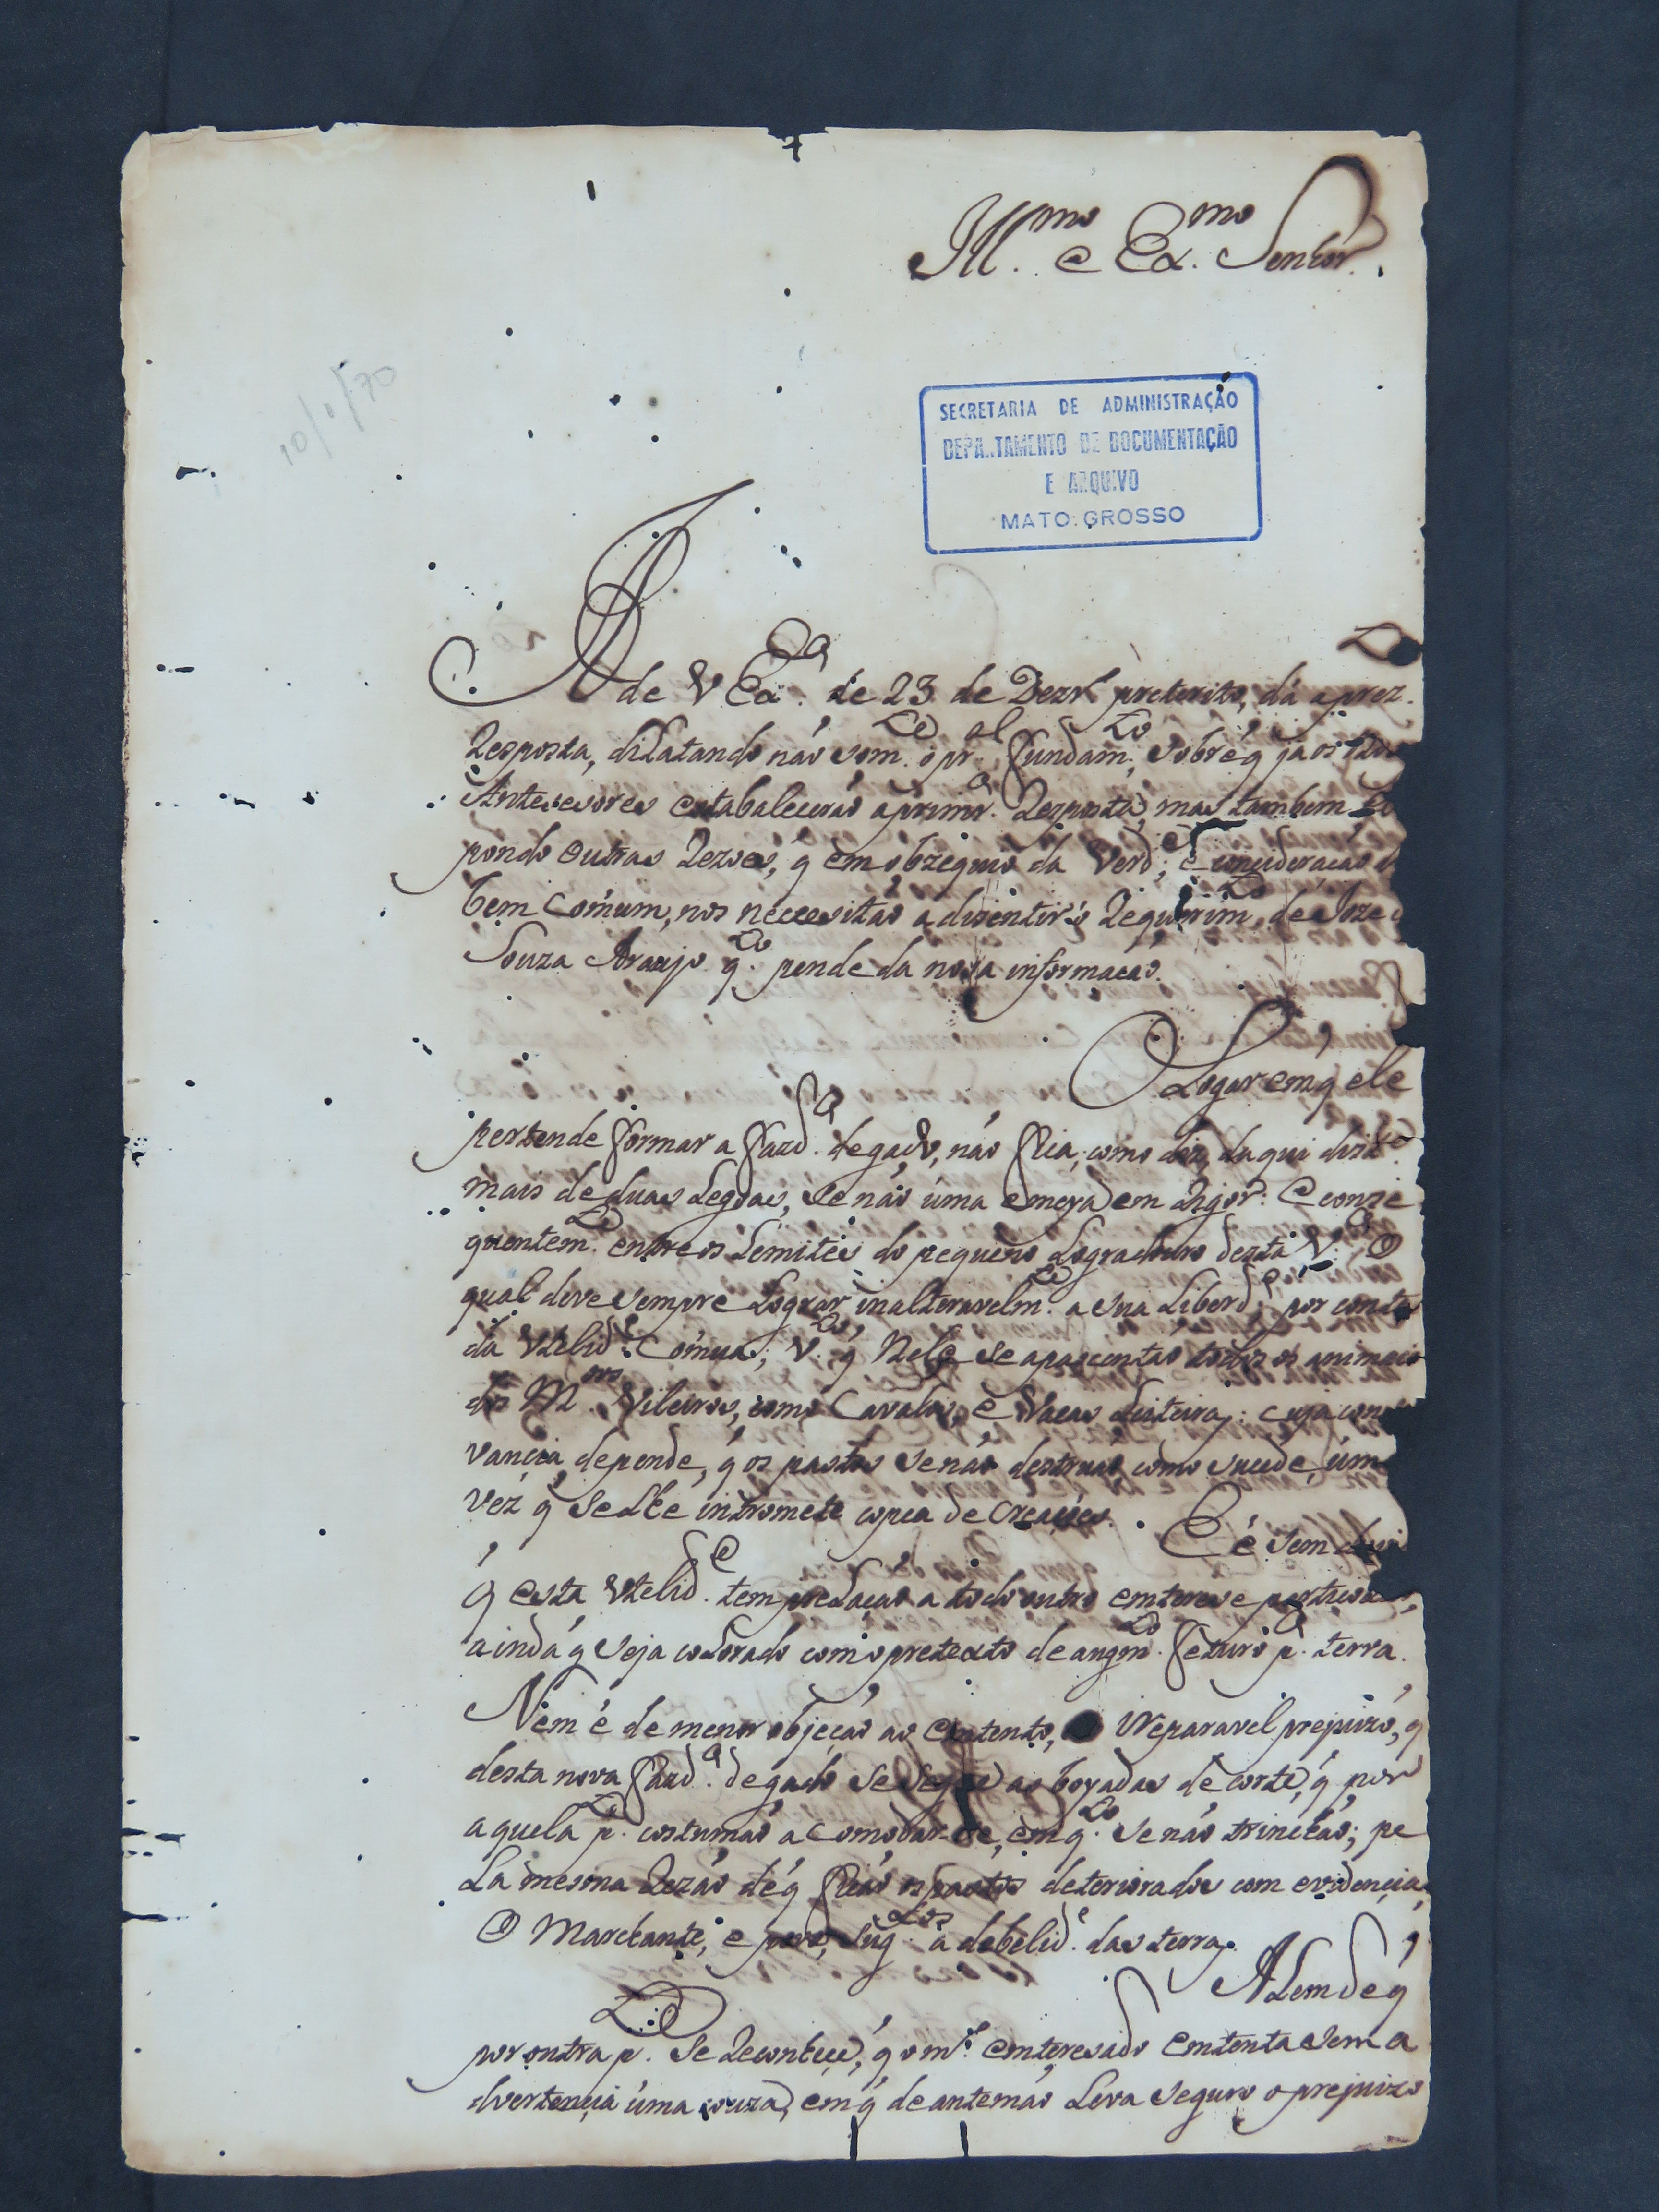 Ill.mo e Ex.mo Senhor.
10/1/70
SECRETARIA DE ADMINISTRAÇÃO
DEPARTAMENTO DE DOCUMENTAÇÃO
E ARQUIVO
MATO GROSSO
A de V Ex.ca de 23 de Dezr.o preterito, dá a prez.te
Resposta, dilatando não som.te o pr.al fundam.to, sobre q̃ ja os
Antesesores estabalecerão a primr.a Resposta, mas tambem
pondo outras Rezoes, q̃ em obzequio da Verd.e, e consideracao
bem Comum, nos necessitão a disentir o Requerim.to de Joze
Souza Araujo q.to pende da nosa informacao.
O Logar em q̃ ele
pertende formar a fazd.a de gado, não fica, como diz, daqui dist.e
mais de duas Legoas, se não uma e meya em Rigor: e conse
quentem.te entre os Lemites do pequeno Logradouro desta V.a O
qual deve sempre Lograr inalteravelm.te a sua Liberd.e por conta
da Vtelid.e Cómua; V.to q̃ Nele se apascentão todos os animais
dos M.ores Vileiros, como Cavalos, e Vacas Leiteiras: cuja
vancia depende, q̃ os pastos se não destruão, como sucede, uma
vez q̃ se Lhe intromete copea de Creações.
E é sem
q̃ esta Vtelid.e tem predação a todo outro emterese
ainda q̃ seja colorado com o pretexto de augm.to feturo p.a terra.
Nem é de menor objeçáo ao Emtento, o Ireparavel prejuizo, q̃
desta nova fazd.a de gado se segue as boyadas de corte, q̃ por
aquela p.te costumão acomodar-se, em q.to se não trincháo; pe
La mesma Rezão de q̃ ficão os pastos deteriorados com evidencia
O Marchante, e povo, sug.tos a debelid.e das terras.
Alem de q̃
por outra p.te se Reconhece, q̃ o m.o emteresado emtenta sem a
dvertencia uma couza, em q̃ de antemão Leva seguro o prejuizo